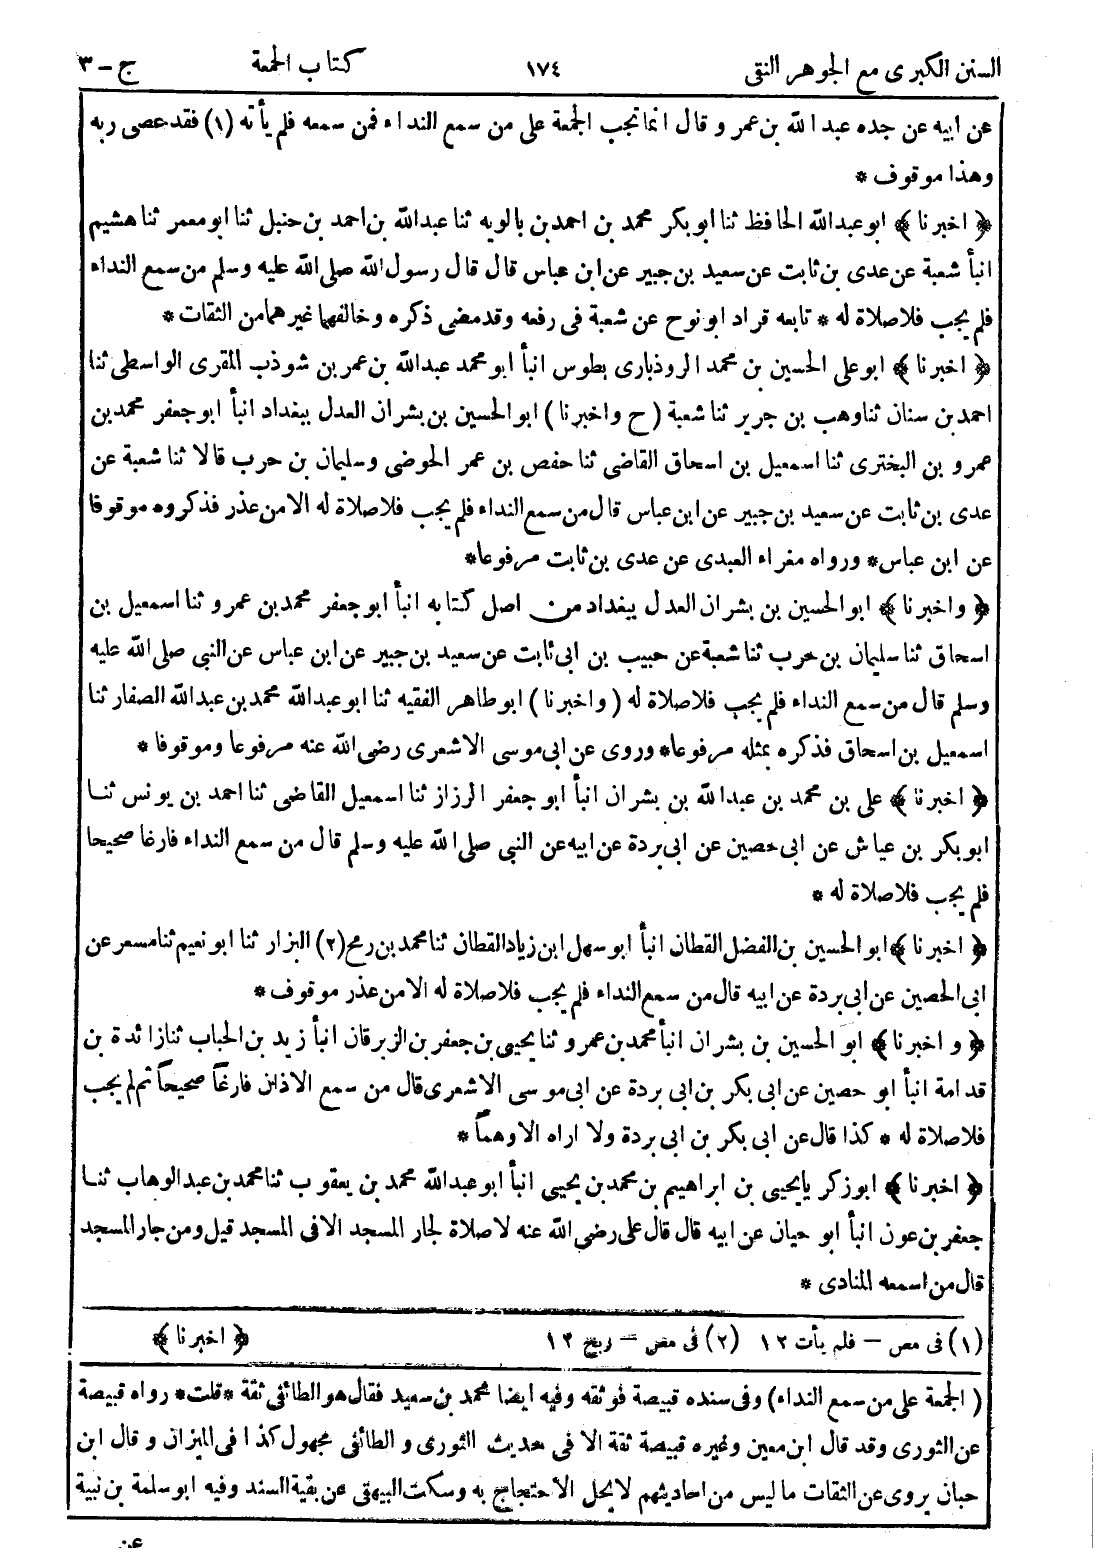 السنن الكبرى مع الجوهر النقى ١٧٤ كتاب الجمعة ج - ٣
عن ابيه عن جده عبد الله بن عمر و قال انما تجب الجمعة على من سمع النداء فمن سمعه فلم يأته (١) فقد عصى ربه
وهذا موقوف *
﴿ اخبرنا ﴾ ابو عبد الله الحافظ ثنا ابو بكر محمد بن احمد بن بالويه ثنا عبد الله بن احمد بن حنبل ثنا ابو معمر ثنا هشيم
انبأ شعبة عن عدى بن ثابت عن سعيد بن جبير عن ابن عباس قال قال رسول الله صلى الله عليه وسلم من سمع النداء
فلم يجب فلا صلاة له * تابعه قراد ابو نوح عن شعبة فى رفعه وقد مضى ذكره وخالفهما غيرهما من الثقات *
﴿ اخبرنا ﴾ ابو على الحسين بن محمد الروذبارى بطوس انبأ ابو محمد عبد الله بن عمر بن شوذب المقرى الواسطى ثنا
احمد بن سنان ثنا وهب بن جرير ثنا شعبة ( ح واخبرنا ) ابو الحسين بن بشران العدل ببغداد انبأ ابو جعفر محمد بن
عمرو بن البخترى ثنا اسمعيل بن اسحاق القاضى ثنا حفص بن عمر الحوضى وسليمان بن حرب قالا ثنا شعبة عن
عدى بن ثابت عن سعيد بن جبير عن ابن عباس قال من سمع النداء فلم يجب فلا صلاة له الا من عذر فذكروه موقوفا
عن ابن عباس * ورواه مغراء العبدى عن عدى بن ثابت مرفوعا *
﴿ و اخبرنا ﴾ ابو الحسين بن بشران العدل ببغداد من اصل كتابه انبأ ابو جعفر محمد بن عمرو ثنا اسمعيل بن
اسحاق ثنا سليمان بن حرب ثنا شعبة عن حبيب بن ابى ثابت عن سعيد بن جبير عن ابن عباس عن النبى صلى الله عليه
وسلم قال من سمع النداء فلم يجب فلا صلاة له ( واخبرنا ) ابو طاهر الفقيه ثنا ابو عبد الله محمد بن عبد الله الصفار ثنا
اسمعيل بن اسحاق فذكره بمثله مرفوعا * وروى عن ابى موسى الاشعرى رضى الله عنه مرفوعا وموقوفا *
﴿ اخبرنا ﴾ على بن محمد بن عبد الله بن بشران انبأ ابو جعفر الرزاز ثنا اسمعيل القاضى ثنا احمد بن يونس ثنا
ابو بكر بن عياش عن ابى حصين عن ابى بردة عن ابيه عن النبى صلى الله عليه وسلم قال من سمع النداء فارغا صحيحا
فلم يجب فلا صلاة له *
﴿ اخبرنا ﴾ ابو الحسين بن الفضل القطان انبأ ابو سهل ابن زياد القطان ثنا محمد بن رمح (٢) البزار ثنا ابو نعيم ثنا مسعر عن
ابى الحصين عن ابى بردة عن ابيه قال من سمع النداء فلم يجب فلا صلاة له الا من عذر موقوف *
﴿ و اخبرنا ﴾ ابو الحسين بن بشران انبأ محمد بن عمرو ثنا يحيى بن جعفر بن الزبرقان انبأ زيد بن الحباب ثنا زائدة بن
قدامة انبأ ابو حصين عن ابى بكر بن ابى بردة عن ابى موسى الاشعرى قال من سمع الاذان فارغاً صحيحاً ثم لم يجب
فلا صلاة له * كذا قال عن ابى بكر بن ابى بردة ولا اراه الا وهماً *
﴿ اخبرنا ﴾ ابو زكريا يحيى بن ابراهيم بن محمد بن يحيى انبأ ابو عبد الله محمد بن يعقوب ثنا محمد بن عبد الوهاب ثنا
جعفر بن عون انبأ ابو حيان عن ابيه قال قال على رضى الله عنه لا صلاة لجار المسجد الا فى المسجد قيل ومن جار المسجد
قال من اسمعه المنادى *
(١) فى مص – فلم يأت ١٢ (٢) فى مص – ربح ١٢ ﴿ اخبرنا ﴾
( الجمعة على من سمع النداء ) وفى سنده قبيصة فوثقه وفيه ايضا محمد بن سعيد فقال هو الطائفى ثقة * قلت * رواه قبيصة
عن الثورى وقد قال ابن معين وغيره قبيصة ثقة الا فى حديث الثورى و الطائفى مجهول كذا فى الميزان و قال ابن
حبان يروى عن الثقات ما ليس من احاديثهم لا يحل الاحتجاج به وسكت البيهقى عن بقية السند وفيه ابو سلمة بن نبية
عن